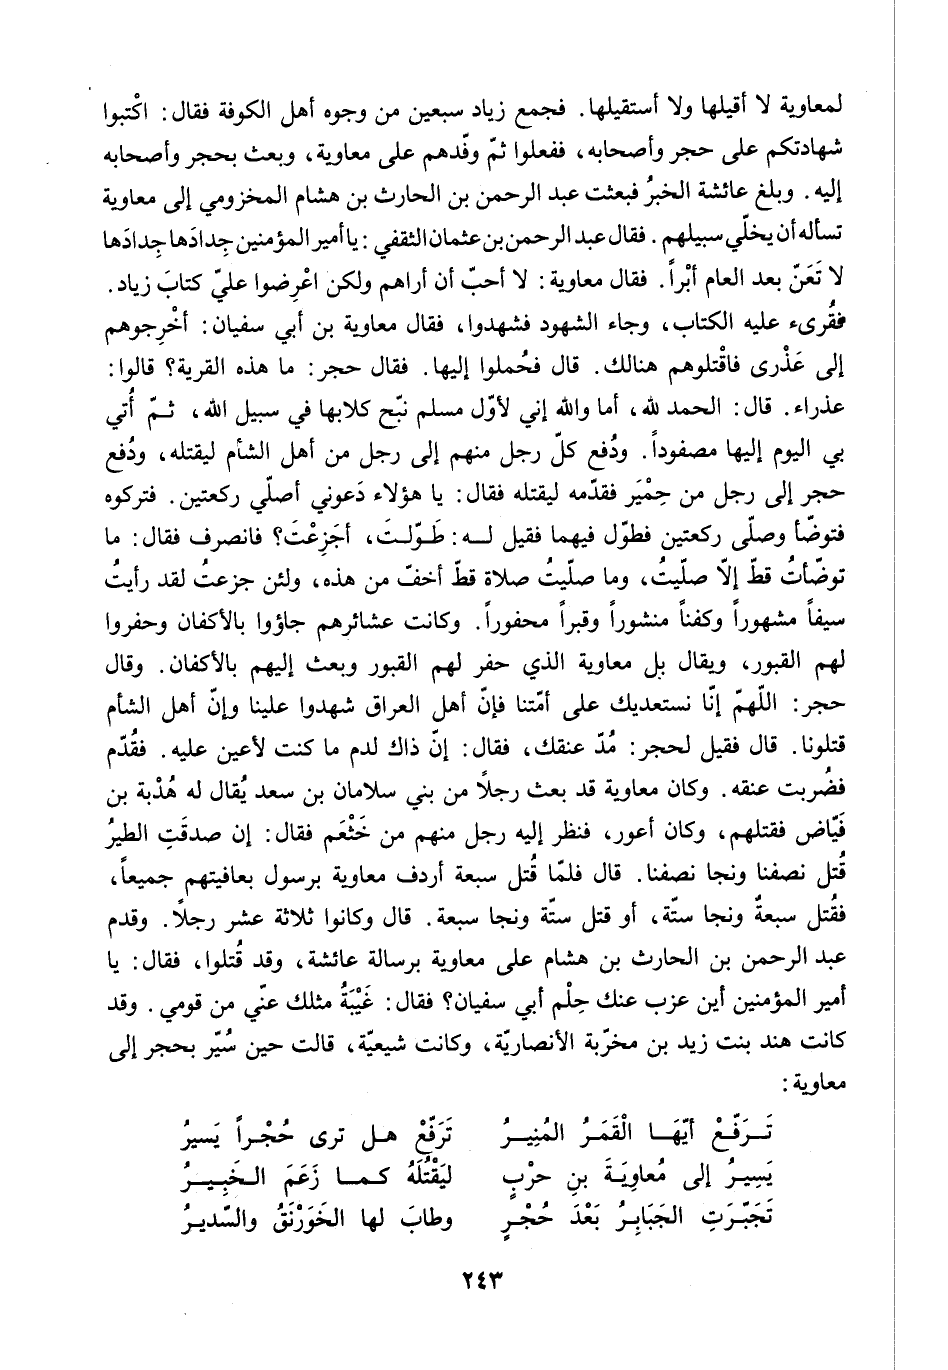 لمعاوية لا أقيلها ولا أستقيلها. فجمع زياد سبعين من وجوه أهل الكوفة فقال: اكْتبوا
شهادتكم على حجر وأصحابه، ففعلوا ثمّ وفّدهم على معاوية، وبعث بحجر وأصحابه
إليه. وبلغ عائشة الخبرُ فبعثت عبد الرحمن بن الحارث بن هشام المخزومي إلى معاوية
تسأله أن يخلّي سبيلهم. فقال عبد الرحمن بن عثمان الثقفي: يا أمير المؤمنين جِدادَها جِدادَها
لا تَعَنّ بعد العام أبْراً. فقال معاوية: لا أحبّ أن أراهم ولكن اعْرِضوا عليّ كتابَ زياد.
فقُرىء عليه الكتاب، وجاء الشهود فشهدوا، فقال معاوية بن أبي سفيان: أخْرِجوهم
إلى عَذْرى فاقْتلوهم هنالك. قال فحُملوا إليها. فقال حجر: ما هذه القرية؟ قالوا:
عذراء. قال: الحمد لله، أما والله إني لأوّل مسلم نبّح كلابها في سبيل الله، ثمّ أُتي
بي اليوم إليها مصفوداً. ودُفع كلّ رجل منهم إلى رجل من أهل الشأم ليقتله، ودُفع
حجر إلى رجل من حِمْيَر فقدّمه ليقتله فقال: يا هؤلاء دَعوني أصلّي ركعتين. فتركوه
فتوضّأ وصلّى ركعتين فطوّل فيهما فقيل له: طَوّلتَ، أجَزِعْتَ؟ فانصرف فقال: ما
توضّأتُ قطّ إلاّ صلّيتُ، وما صلّيتُ صلاة قطّ أخفّ من هذه، ولئن جزعتُ لقد رأيتُ
سيفاً مشهوراً وكفناً منشوراً وقبراً محفوراً. وكانت عشائرهم جاؤوا بالأكفان وحفروا
لهم القبور، ويقال بل معاوية الذي حفر لهم القبور وبعث إليهم بالأكفان. وقال
حجر: اللّهمّ إنّا نستعديك على أمّتنا فإنّ أهل العراق شهدوا علينا وإنّ أهل الشأم
قتلونا. قال فقيل لحجر: مُدّ عنقك، فقال: إنّ ذاك لدم ما كنت لأعين عليه. فقُدّم
فضُربت عنقه. وكان معاوية قد بعث رجلاً من بني سلامان بن سعد يُقال له هُدْبة بن
فَيّاض فقتلهم، وكان أعور، فنظر إليه رجل منهم من خَثْعَم فقال: إن صدقَتِ الطيرُ
قُتل نصفنا ونجا نصفنا. قال فلمّا قُتل سبعة أردف معاوية برسول بعافيتهم جميعاً،
فقُتل سبعةٌ ونجا ستّة، أو قتل ستّة ونجا سبعة. قال وكانوا ثلاثة عشر رجلاً. وقدم
عبد الرحمن بن الحارث بن هشام على معاوية برسالة عائشة، وقد قُتلوا، فقال: يا
أمير المؤمنين أين عزب عنك حِلْم أبي سفيان؟ فقال: غَيْبَةُ مثلك عنّي من قومي. وقد
كانت هند بنت زيد بن مخرّبة الأنصاريّة، وكانت شيعيّة، قالت حين سُيّر بحجر إلى
معاوية:
تَرَفّعْ أيّهَا الْقَمَرُ المُنِيرُ تَرَفّعْ هل ترى حُجْراً يَسيرُ
يَسِيرُ إلى مُعاوِيَةَ بنِ حرْبٍ ليَقْتُلَهُ كما زَعَمَ الخَبِيرُ
تَجَبّرَتِ الجَبَابِرُ بَعْدَ حُجْرٍ وطابَ لها الخَوَرْنَقُ والسّديرُ
٢٤٣